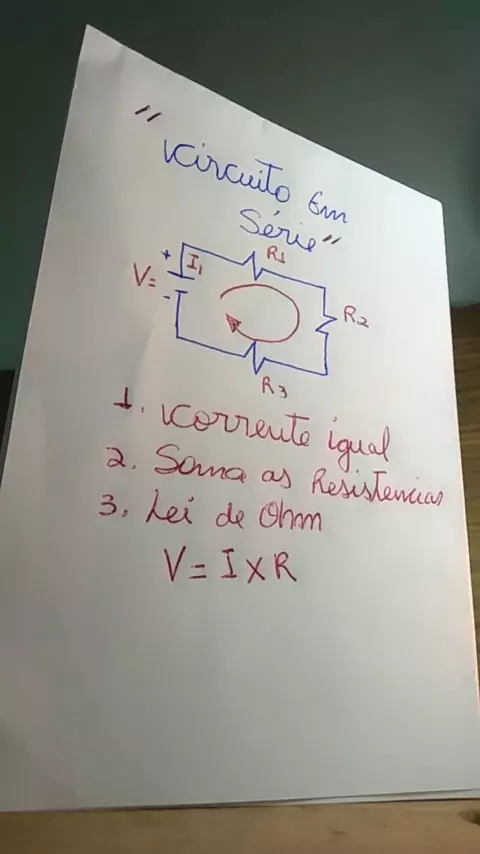 "Circuito Em
Série"
+ I1 R1
V=
-
R2
R3
1. Corrente igual
2. Soma as Resistencias
3. Lei de Ohm
V = I X R